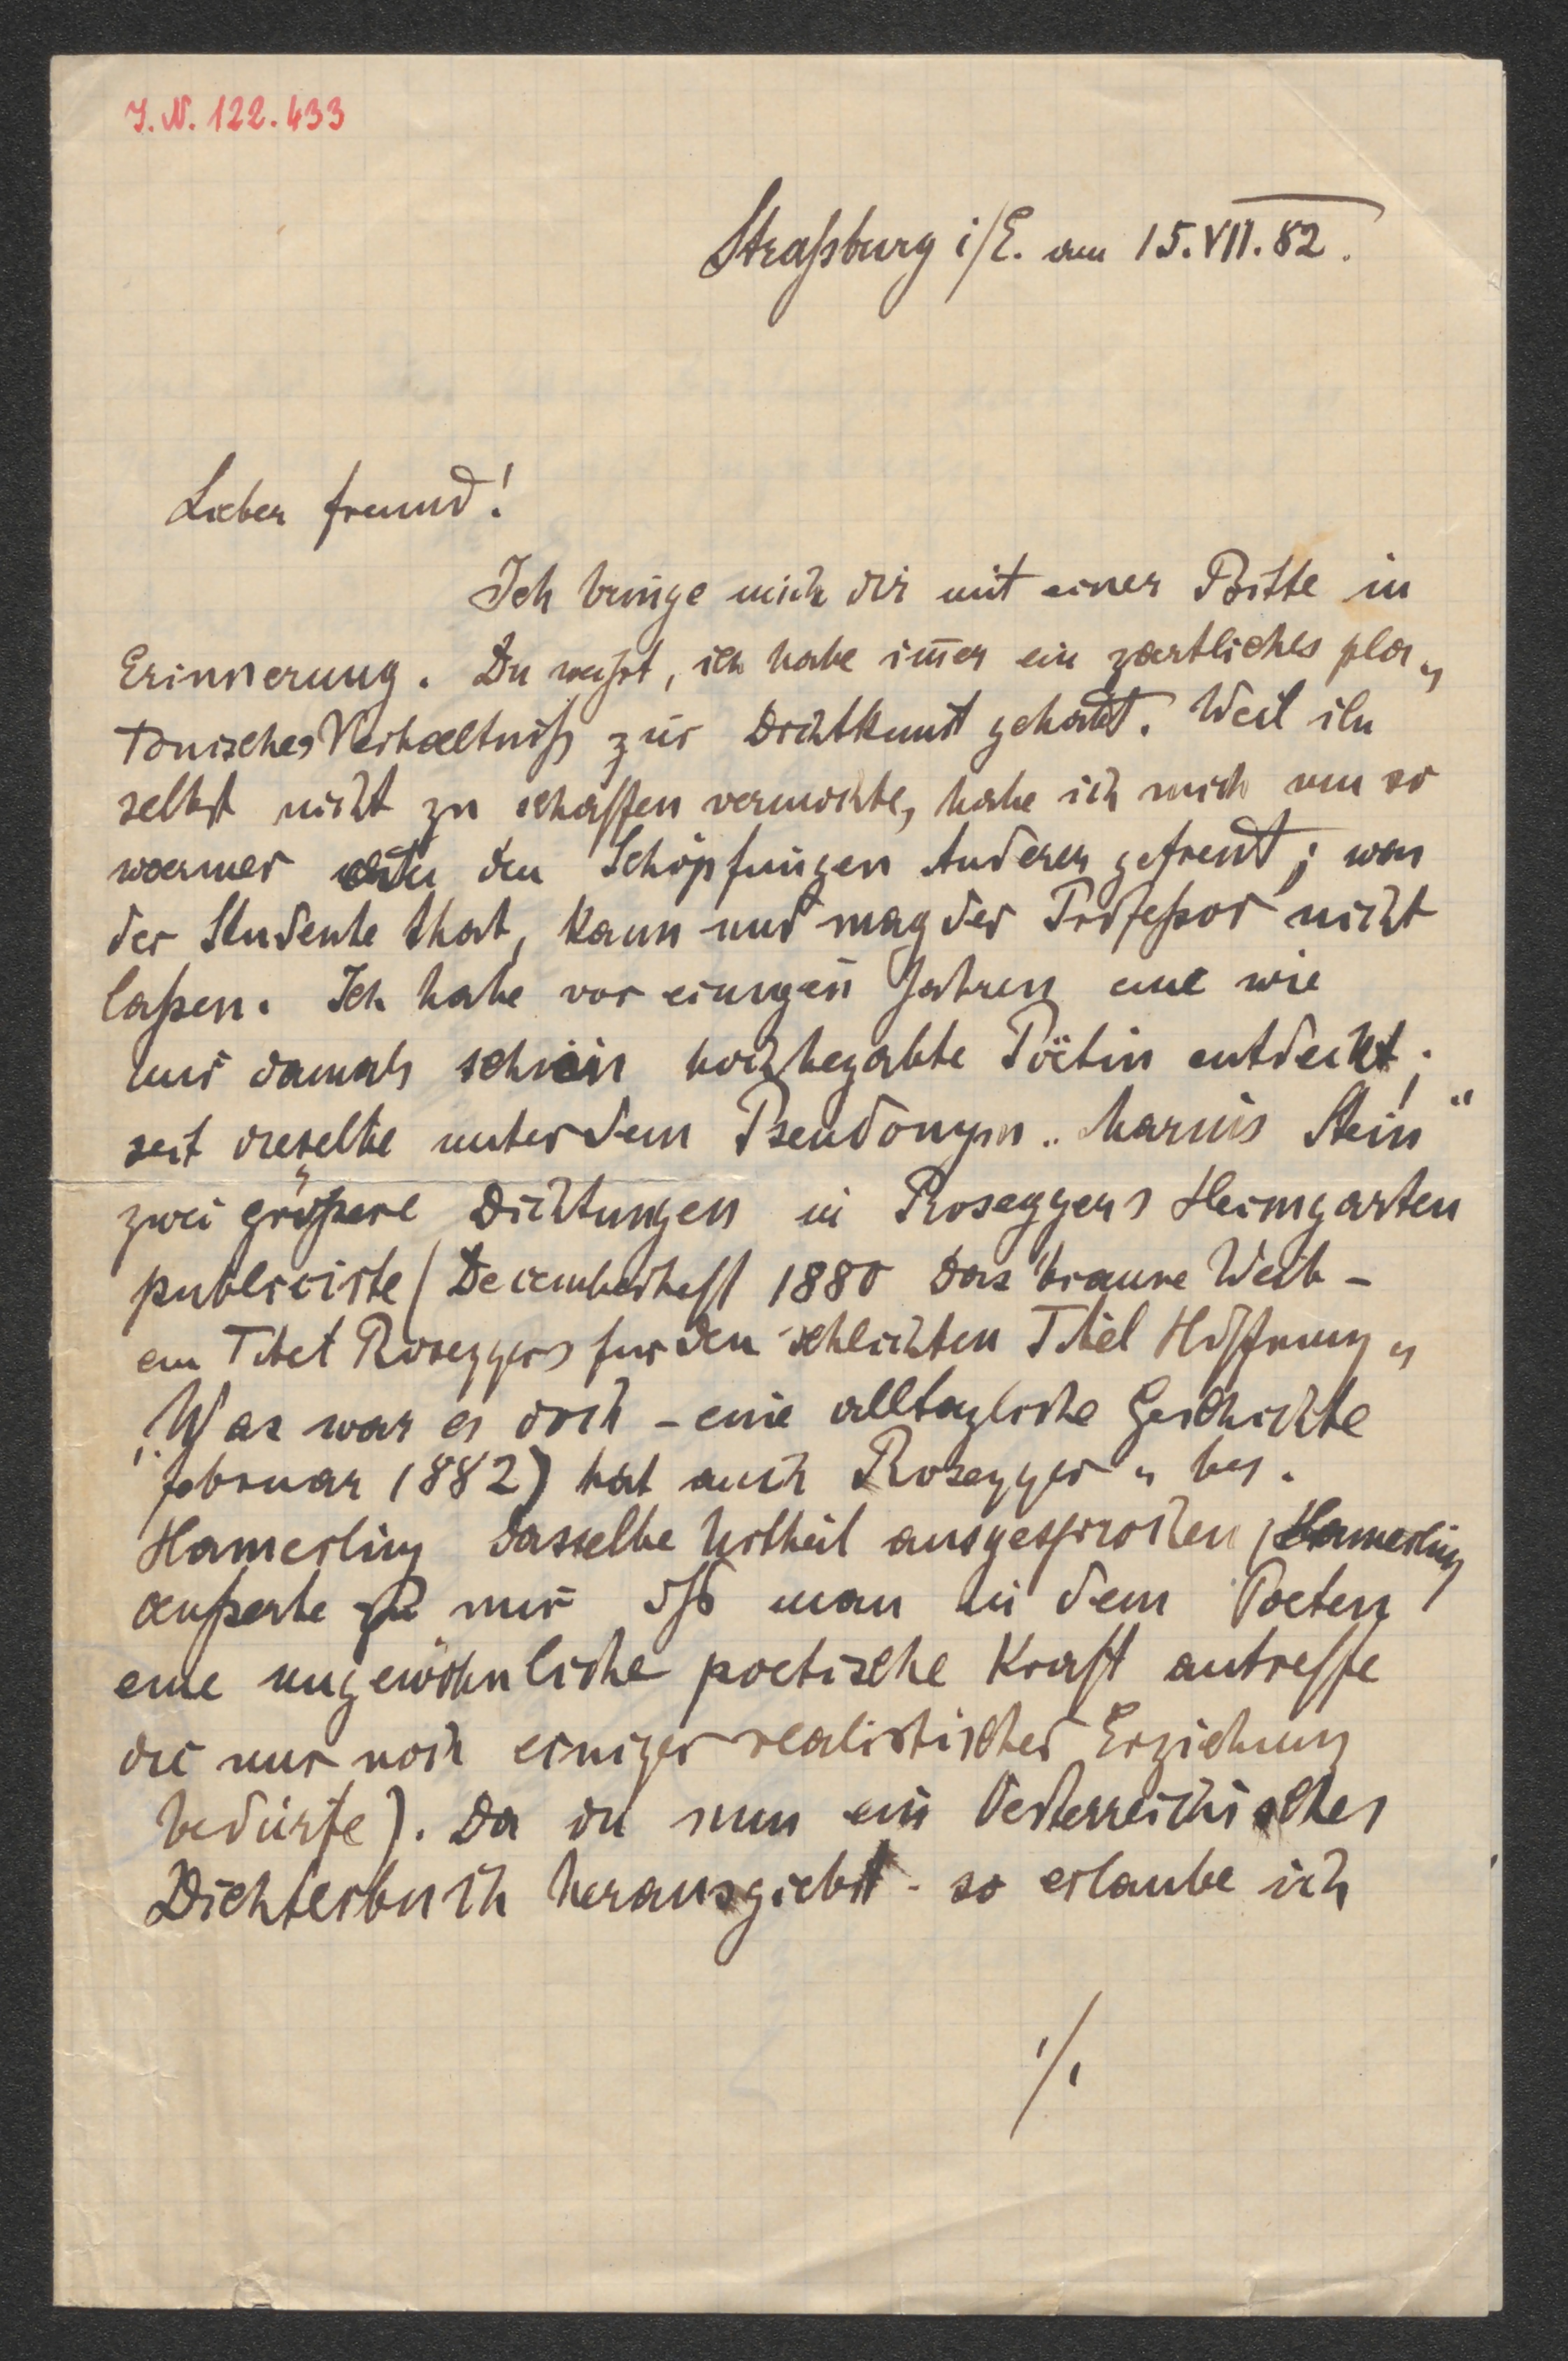 I. N. 122.433
Straßburg i/E. am 15.VII.82.
Lieber Freund!
Ich bringe mich dir mit einer Bitte in
Erinnerung. Du weißt, ich habe im̄er ein zaertliches pla„
tonisches Verhaeltniß zur Dichtkunst gehabt. Weil ich
selbst nicht zu schaffen vermochte, habe ich mich um so
waermer an den Schöpfungen Anderer gefreut; was
der Studente that, kann und mag der Profeßor nicht
laßen. Ich habe vor einigen Jahren eine wie
mir damals schien hochbegabte Poëtin entdeckt;
seit dieselbe unter dem Pseudonym „Marius Stein“
zwei größere Dichtungen in Roseggers Heimgarten
publicirte (Decemberheft 1880 Das braune Weib –
ein Titel Roseggers für den schlichten Titel Hoffnung „
„Was war es doch – eine alltagliche Geschichte
Februar 1882) hat auch Rosegger u bes.
Hamerling dasselbe Urtheil ausgesprochen (Hamerling
aeußerte zu mir dß man in dem Poeten
eine ungewöhnliche poetische Kraft antreffe
die nur noch einiger realistischer Erziehung
bedürfe). Da du nun ein Oesterreichisches
Dichterbuch herausgiebst – so erlaube ich
./.